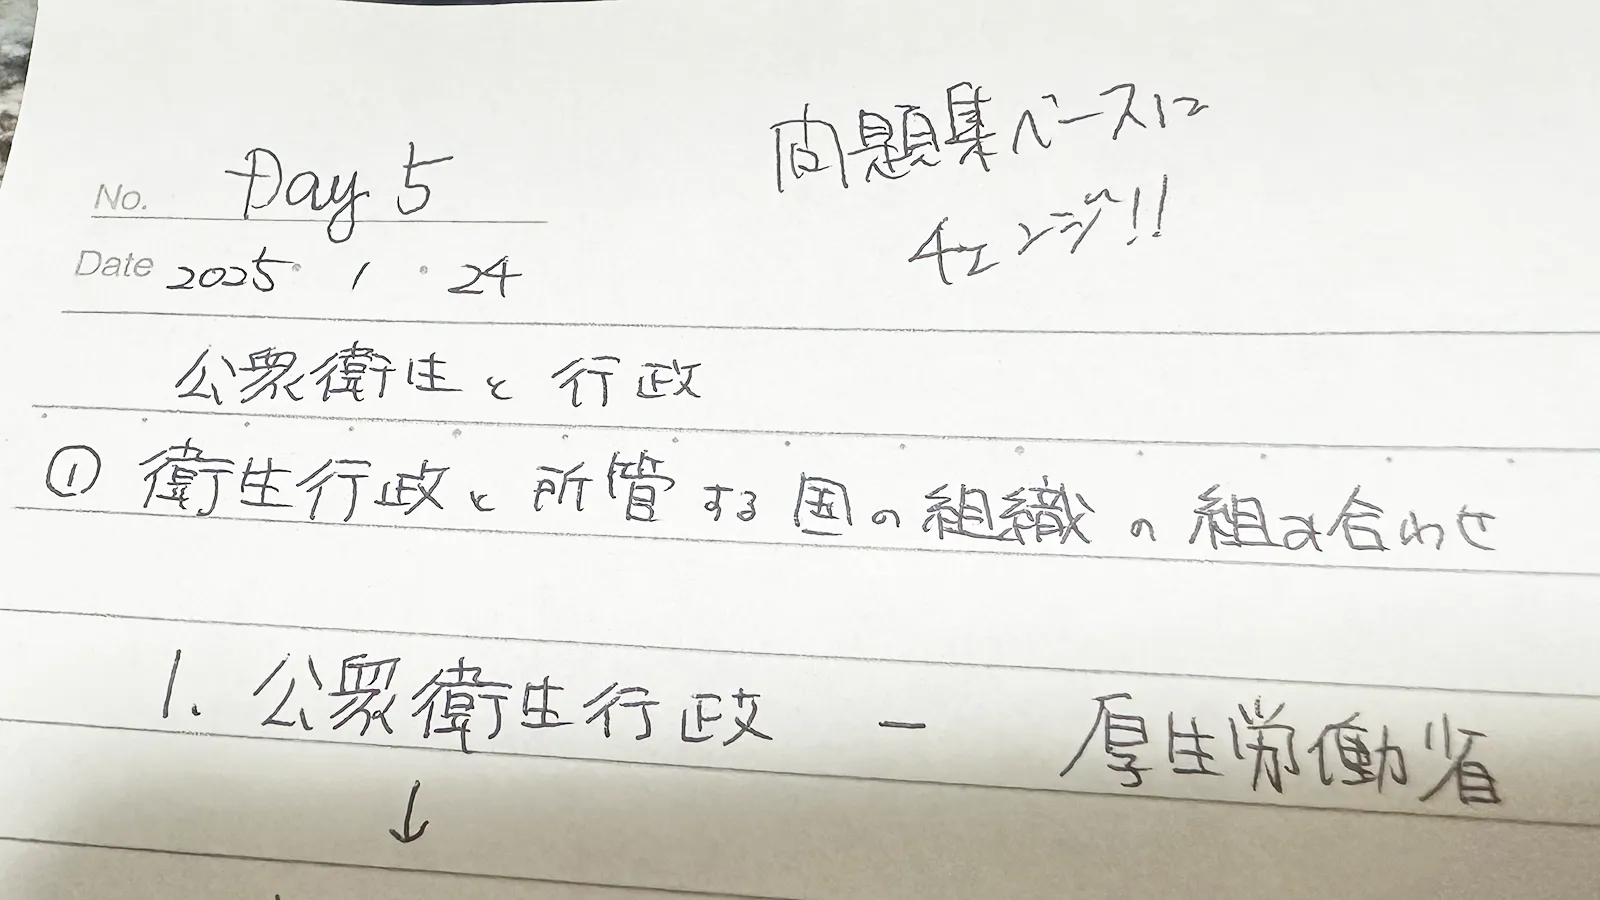 No. Day 5
Date 2025・1・24
問題集ベースに
チェンジ!!
公衆衛生と行政
① 衛生行政と所管する国の組織の組み合わせ
1. 公衆衛生行政 ー 厚生労働省
↓